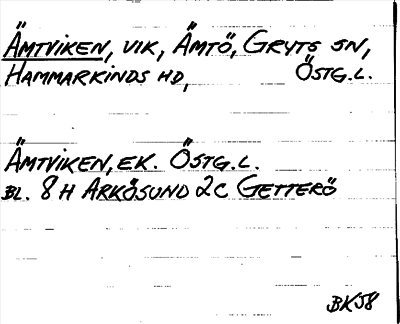 Ämtviken, vik, Ämtö, Gryts sn,
Hammarkinds hd, Östg.l.
Ämtviken, ek. Östg.l.
bl. 8 H Arkösund 2c Getterö
BK58